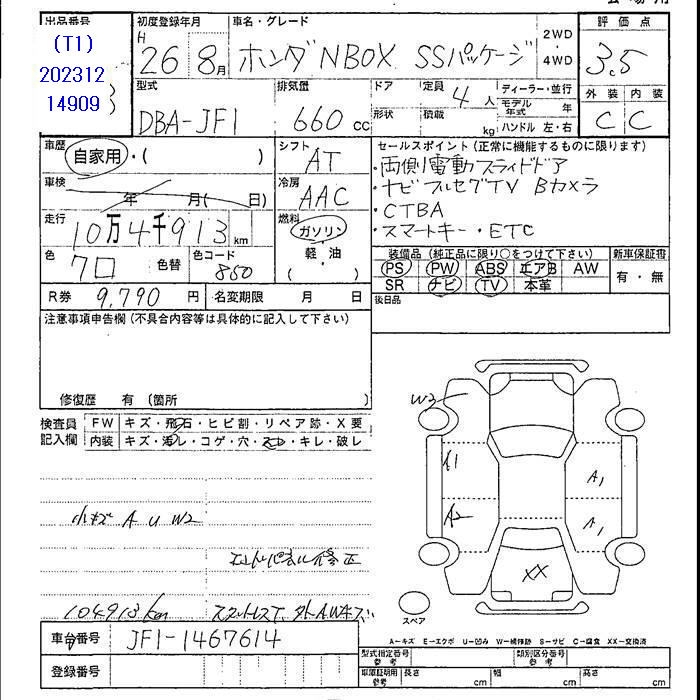 出品番号
(T1)
202312
14909
初度登録年月
H
26 8月
車名・グレード
ホンダ NBOX SSパッケージ
2WD
・
4WD
評価点
3.5
外装 内装
C C
型式
DBA-JF1
排気量
660 cc
ドア
形状
定員
4 人
積載
kg
ディーラー・並行
モデル年式 年
ハンドル 左・右
車歴
自家用・( )
シフト
AT
車検
年 月( 日)
冷房
AAC
走行
10万4千913 km
燃料
ガソリン
・
軽・油
( )
色
クロ
色替
色コード
850
R券 9,790 円
名変期限 月 日
セールスポイント (正常に機能するものに限ります)
・両側電動スライドドア
・ナビ フルセグTV Bカメラ
・CTBA
・スマートキー・ETC
装備品 (純正品に限り○をつけて下さい)
新車保証書
PS PW ABS エアB AW
SR ナビ TV 本革
有・無
後日品
注意事項申告欄 (不具合内容等は具体的に記入して下さい)
修復歴 有 (箇所 )
検査員
記入欄
FW キズ・飛石・ヒビ割・リペア跡・X要
内装 キズ・汚レ・コゲ・穴・スレ・キレ・破レ
小キズ A U W2
104913km
W3
A1
A2
A1
A1
XX
スペア
A-キズ E-エクボ U-凹み W-補修跡 S-サビ C-腐食 XX-交換済
車台番号 JF1-1467614
登録番号
型式指定番号
参考
類別区分番号
参考
車庫証明用
参考
長さ cm
幅 cm
高さ cm